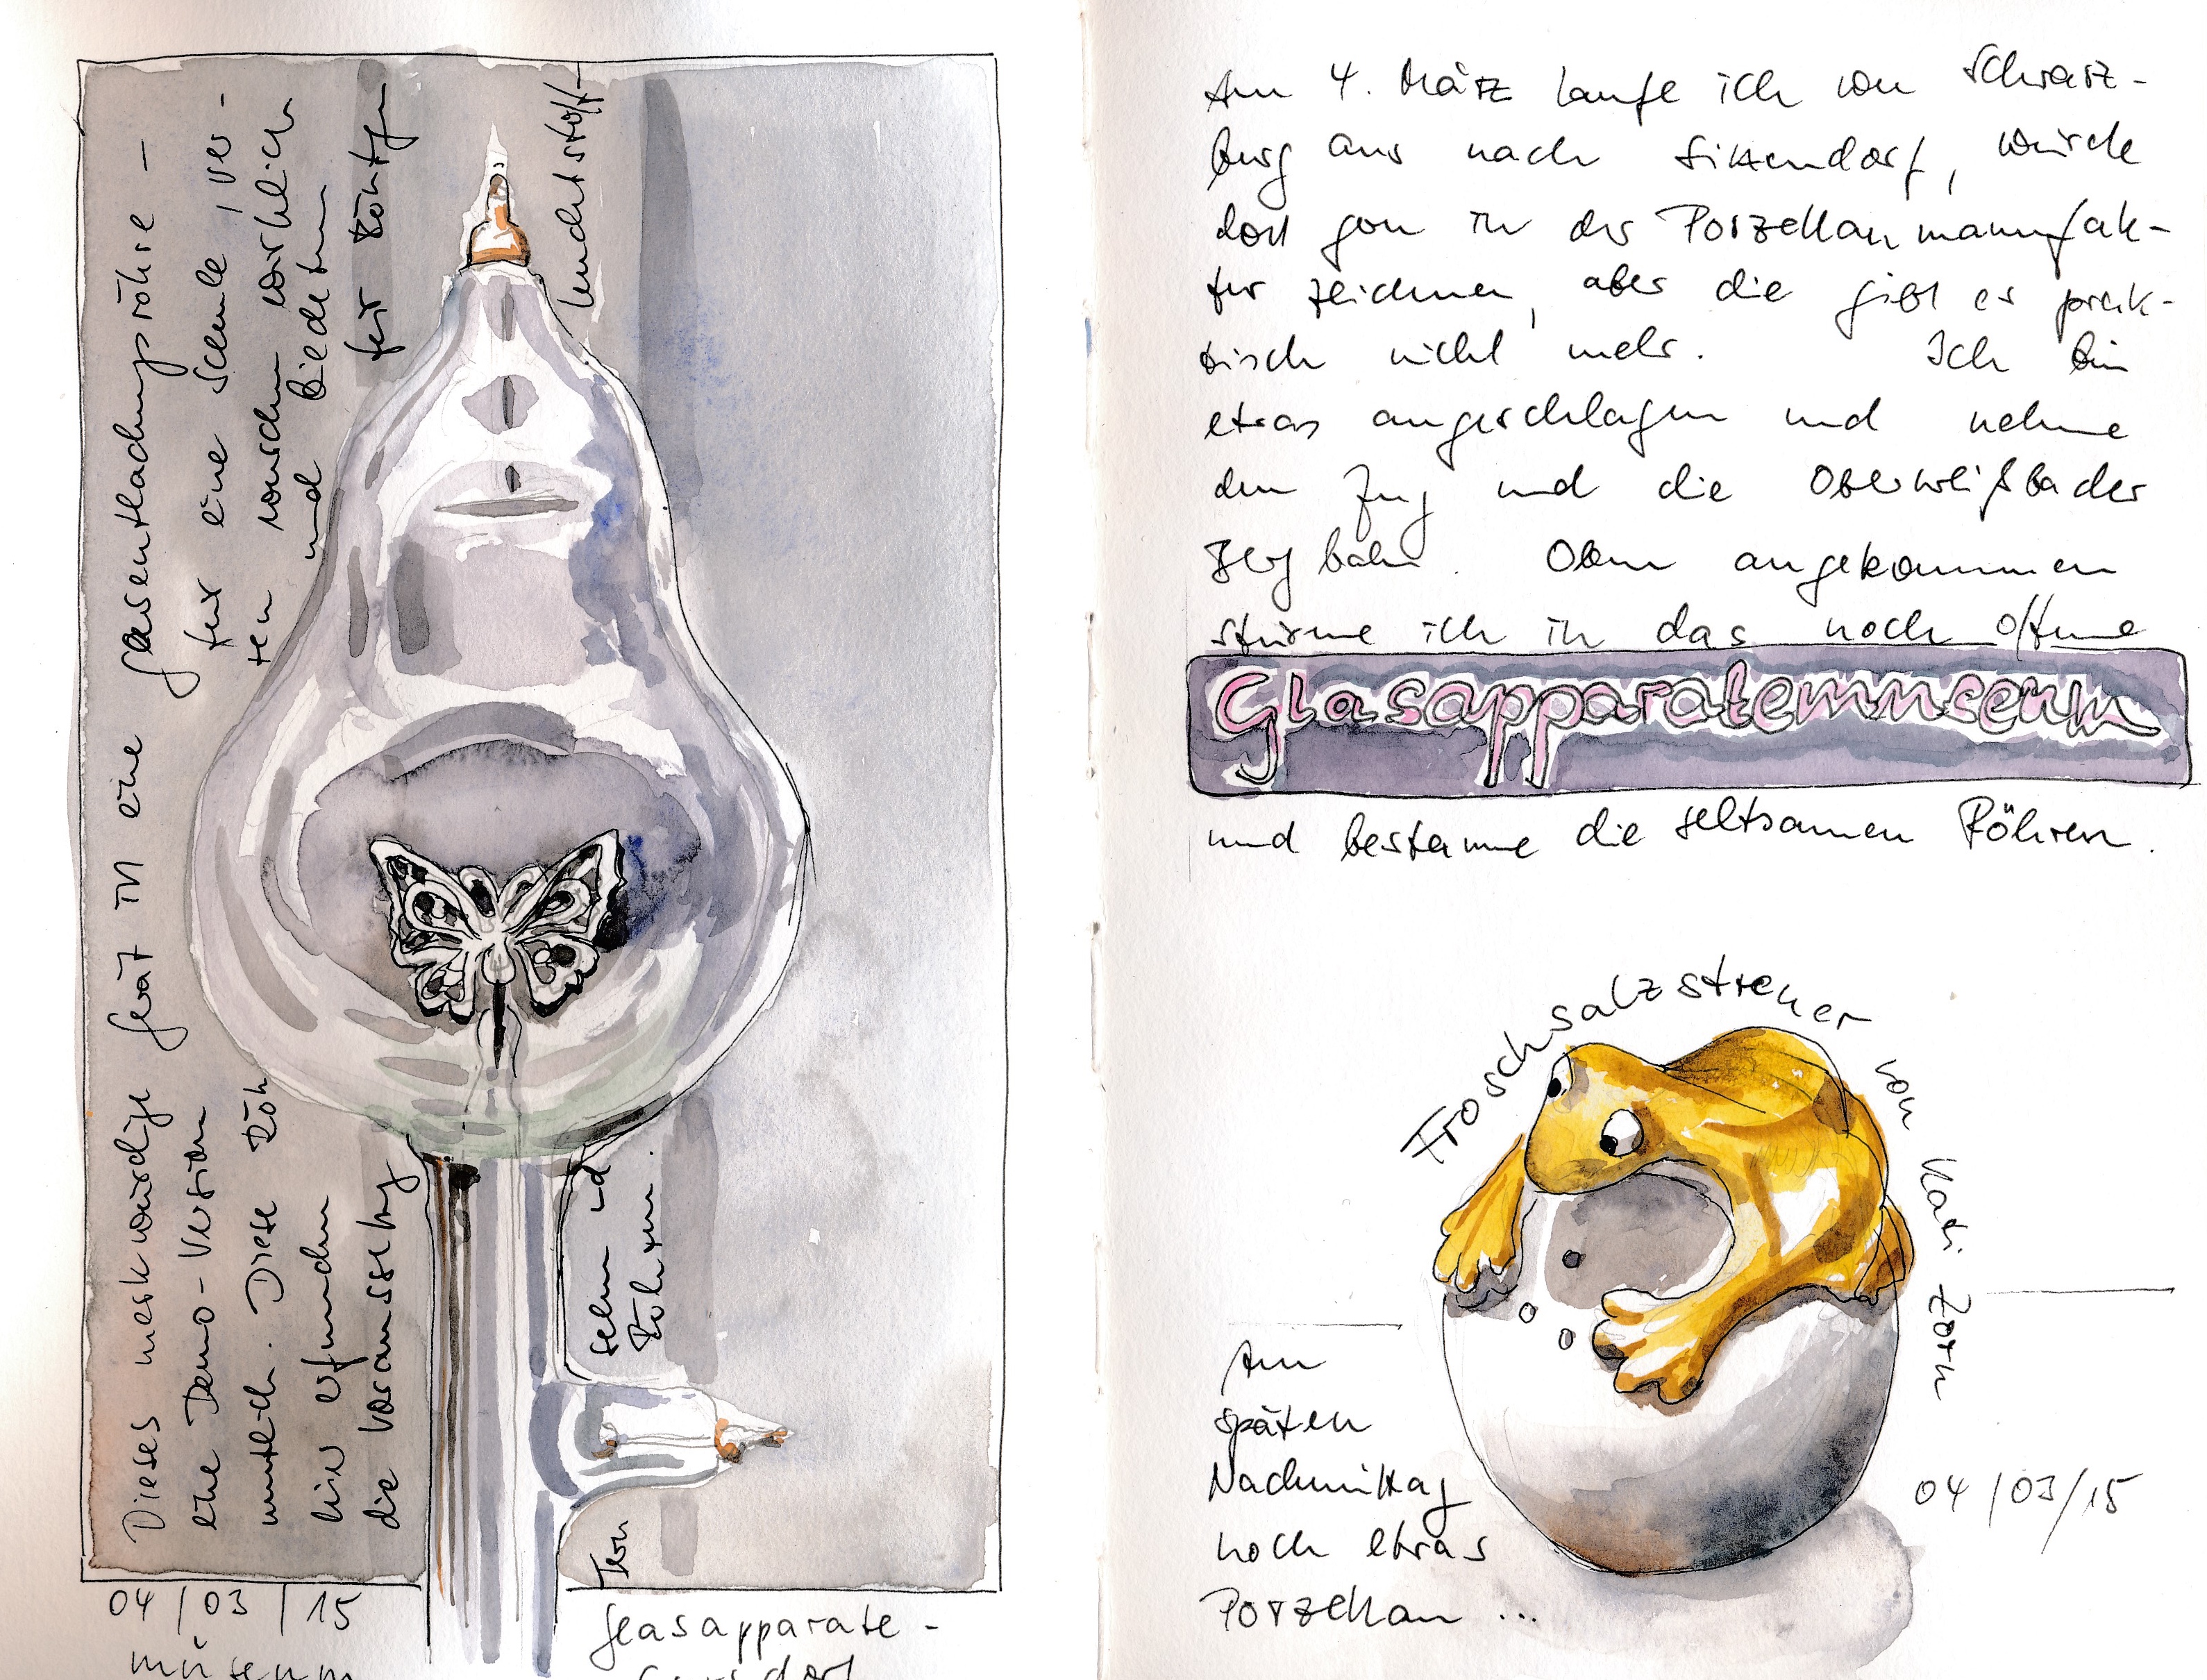 Dieses merkwürdige Gerät ist eine Gasentladungsröhre –
eine Demo-Version für eine Schule, ver-
mutlich. Diese Röh ren wurden wirklich
hier erfunden und bildeten
die Voraussetzung für Röntgen
Fern sehen und Leuchtstoff-
Röhren.
04/03/15 Glasapparate-
museum Cursdorf
Am 4. März laufe ich von Schwarz-
burg aus nach Sitzendorf, würde
dort gern in der Porzellanmanufak-
tur zeichnen, aber die gibt es prak-
tisch nicht mehr. Ich bin
etwas angeschlagen und nehme
den Zug und die Oberweißbacher
Bergbahn. Oben angekommen
stürme ich in das noch offene
Glasapparatemuseum
und bestaune die seltsamen Röhren.
Froschsalzstreuer von Kati Zorn
Am
späten
Nachmittag
noch etwas
Porzellan ...
04/03/15